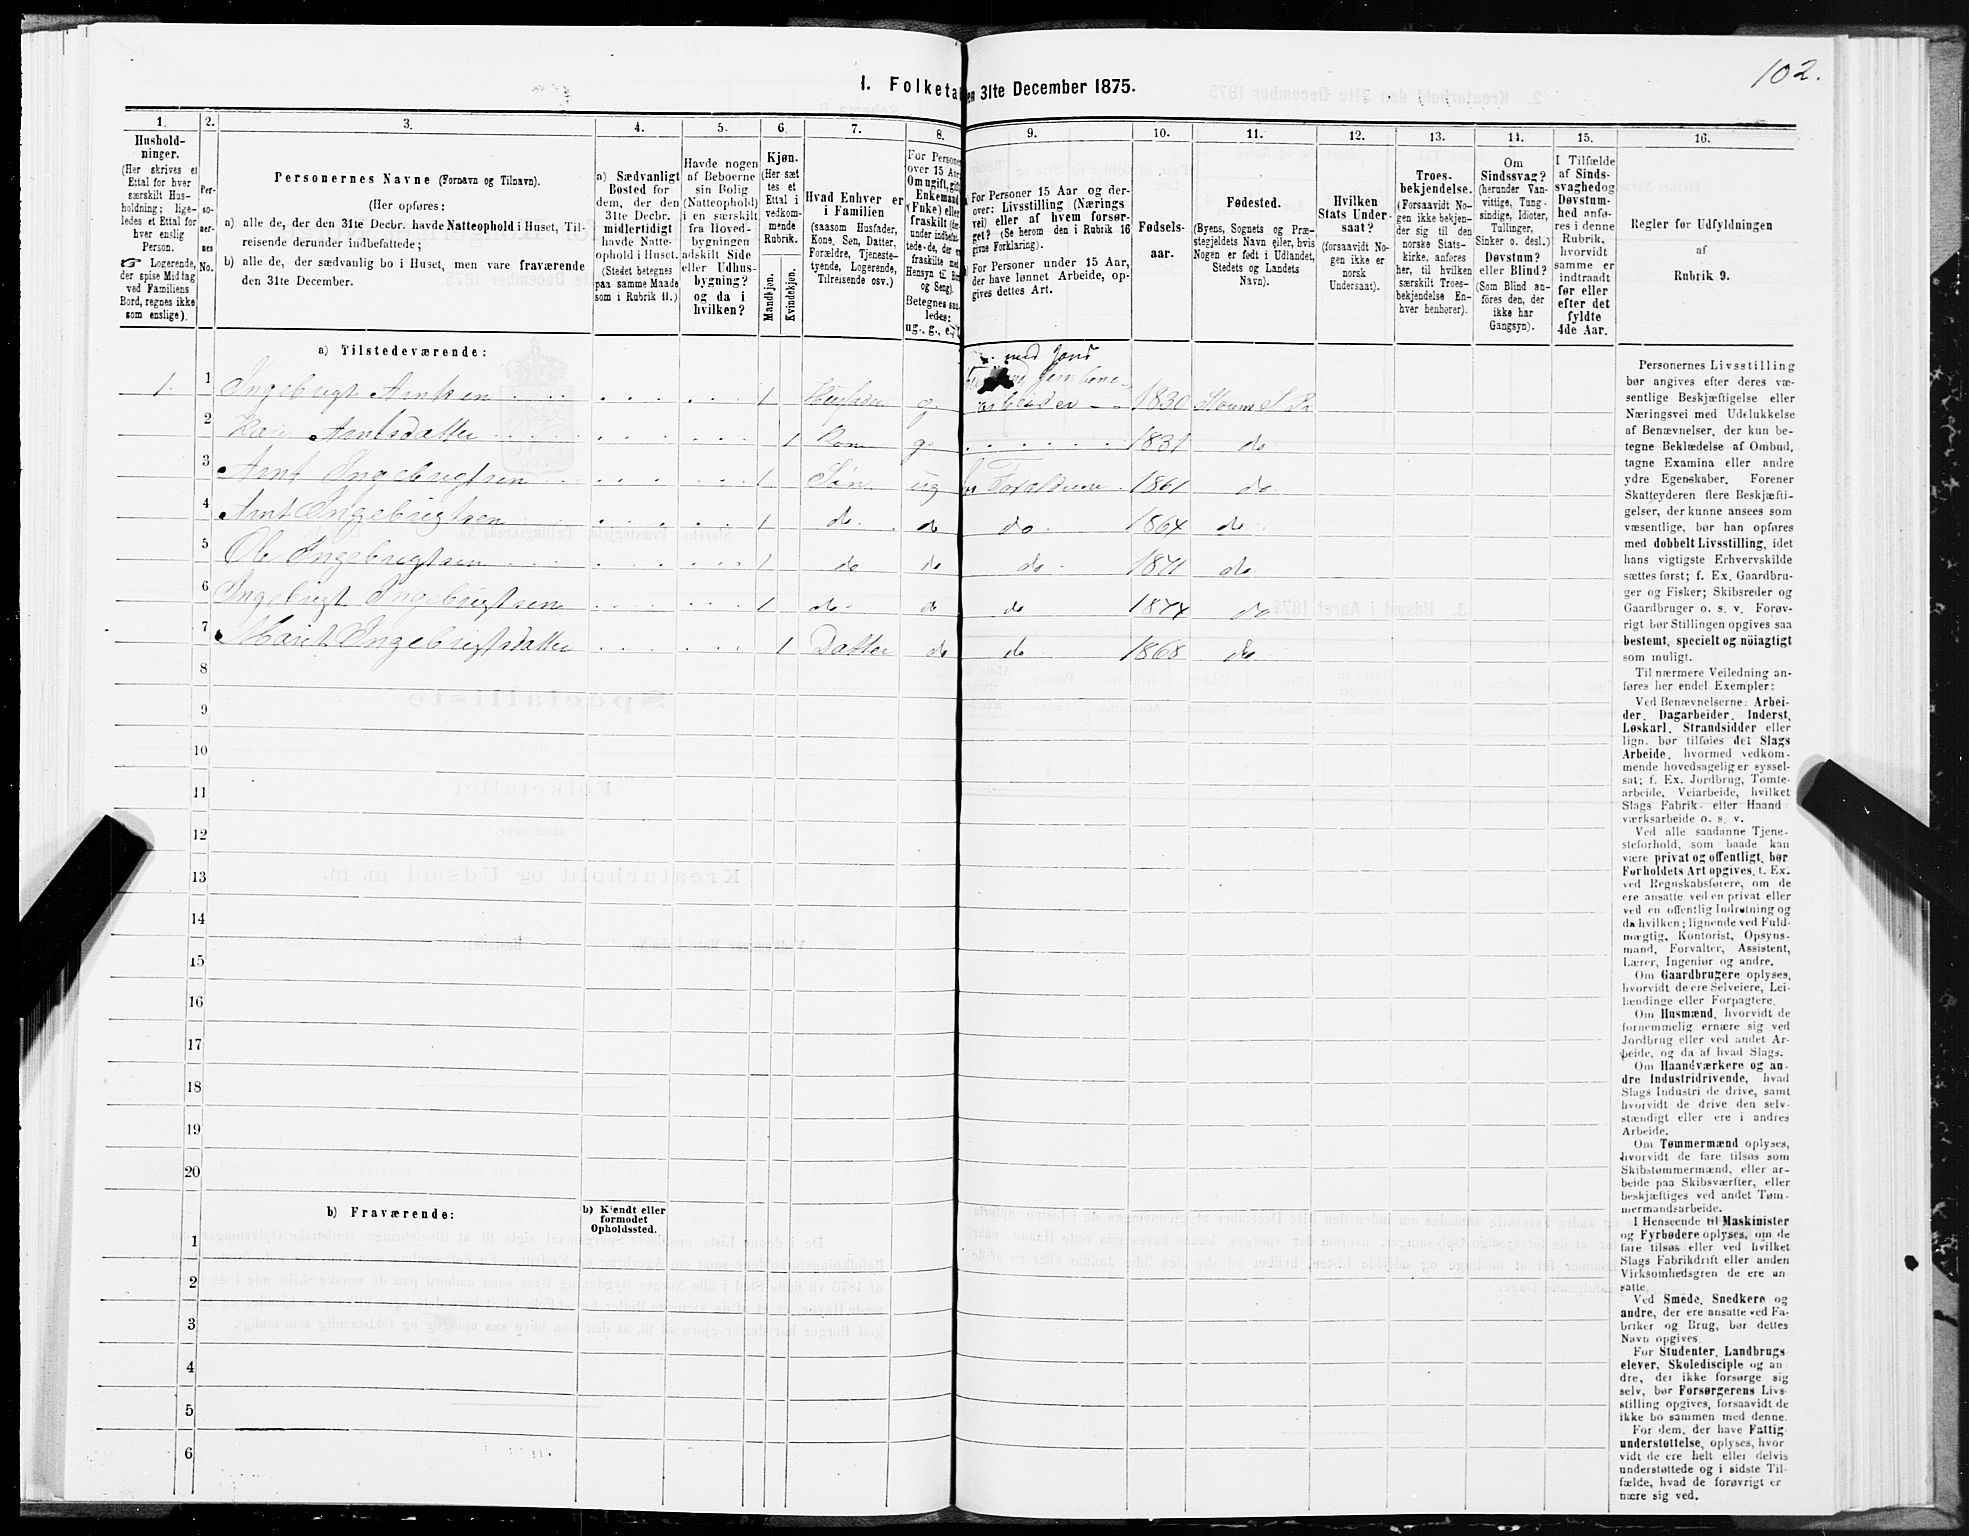 102.
I. Folketal den 31te December 1875.
1. 2. 3. 4. 5. 6. 7. 8. 9. 10. 11. 12. 13. 14. 15. 16.
Hushold-
ninger.
(Her skrives et
Ettal for hver
særskilt Hus-
holdning; lige-
ledes et Ettal for
hver enslig
Person.
☞ Logerende,
der spise Middag
ved Familiens
Bord, regnes ikke
som enslige).
Per-
so-
ner-
nes
No.
Personernes Navne (Fornavn og Tilnavn).
(Her opføres:
a) alle de, der den 31te Decbr. havde Natteophold i Huset, Til-
reisende derunder indbefattede;
b) alle de, der sædvanlig bo i Huset, men vare fraværende
den 31te December.
a) Sædvanligt
Bosted for
dem, der den
31te Decbr.
midlertidigt
havde Natte-
ophold i Huset.
(Stedet betegnes
paa samme Maade
som i Rubrik 11.)
Havde nogen
af Beboerne
sin Bolig
(Natteophold)
i en særskilt
fra Hoved-
bygningen
adskilt Side
eller Udhus-
bygning?
og da i
hvilken?
Kjøn.
(Her sæt
tes et
Ettal i
vedkom-
mende
Rubrik.
Mandkjøn.
Kvindekjøn.
Hvad Enhver er
i Familien
(saasom Husfader,
Kone, Søn, Datter,
Forældre, Tjeneste-
tyende, Logerende,
Tilreisende osv.)
For Personer
over 15 Aar:
Om ugift, gift,
Enkemand
(Enke) eller
fraskilt
Betegnes saa-
ledes:
ug., g., e., f.
For Personer 15 Aar og der-
over: Livsstilling (Nærings
vei) eller af hvem forsør-
get? (Se herom den i Rubrik 16
givne Forklaring).
For Personer under 15 Aar,
der have lønnet Arbeide, op-
gives dettes Art.
Fødsels-
aar.
Fødested.
(Byens, Sognets og Præ-
stegjeldets Navn eller, hvis
Nogen er født i Udlandet,
Stedets og Landets
Navn).
Hvilken
Stats Under-
saat?
(forsaavidt No-
gen ikke er
norsk
Undersaat).
Troes-
bekjendelse.
(Forsaavidt No-
gen ikke bekjen-
der sig til den
norske Stats-
kirke, anføres
her, til hvilken
særskilt Troes-
bekjendelse En-
hver henhører).
Om
Sindssvag?
(herunder Van-
vittige, Tung-
sindige, Idioter,
Tullinger,
Sinker o. desl.)
Døvstum?
eller Blind?
(Som Blind an-
føres den, der
ikke har
Gangsyn).
I Tilfælde
af Sinds-
svaghed og
Døvstum-
hed anfø-
res i denne
Rubrik,
hvorvidt
samme er
indtraadt
før eller
efter det
fyldte
4de Aar.
Regler for Udfyldningen
af
Rubrik 9.
a) Tilstedeværende:
med Jord
1. 1 Ingebrigt Arntsen 1 Husfader g. arbeider 1830
2 Arntsdatter 1 Kone g. 1831 do
3 Arnt Ingebrigtsen 1 Søn ug 1861 do
4 Arnt Ingebrigtsen 1 do. do do. 1864 do
5 Ole Ingebrigtsen 1 do do do 1871 do
6 Ingebrigt Ingebrigtsen 1 do do do 1874 do
7 Marit Ingebrigtsdatter 1 Datter do do 1868 do
8
9
10
11
12
13
14
15
16
17
18
19
20
b) Fraværende:
b) Kjendt eller
formodet
Opholdssted.
1
2
3
4
5
6
Personernes Livsstilling
bør angives efter deres væ-
sentlige Beskjæftigelse eller
Næringsvei med Udelukkelse
af Benævnelser, der kun be-
tegne Beklædelse af Ombud,
tagne Examina eller andre
ydre Egenskaber. Forener
Skatteyderen flere Beskjæfti-
gelser, der kunne ansees som
væsentlige, bør han opføres
med dobbelt Livsstilling, idet
hans vigtigste Erhvervskilde
sættes først; f. Ex. Gaardbru-
ger og Fisker; Skibsreder og
Gaardbruger o. s. v. Forøv-
rigt bør Stillingen opgives saa
bestemt, specielt og nöiagtigt
som muligt.
Til nærmere Veiledning an-
føres her endel Exempler:
Ved Benævnelserne: Arbei-
der, Dagarbeider, Inderst,
Løskarl, Strandsidder eller
lign. bør tilføies det Slags
Arbeide, hvormed vedkom-
mende hovedsagelig er syssel-
sat; f. Ex. Jordbrug, Tomte-
arbeide, Veiarbeide, hvilket
Slags Fabrik- eller Haand
værksarbeide o. s. v.
Ved alle saadanne Tjene-
steforhold, som baade kan
være privat og offentligt, bør
Forholdets Art opgives, f. Ex.
ved Regnskabsførere, om de
ere ansatte ved en privat eller
ved en offentlig Indretning og
da hvilken; lignende ved Fuld-
mægtig, Kontorist, Opsyns-
mand, Forvalter, Assistent,
Lærer, Ingeniør og andre.
Om Gaardbrugere oplyses,
hvorvidt de ere Selveiere, Lei-
lændinge eller Forpagtere.
Om Husmænd, hvorvidt de
fornemmelig ernære sig ved
Jordbrug eller ved andet Ar-
beide, og da af hvad Slags.
Om Haandværkere og an-
dre Industridrivende, hvad
Slags Industri de drive, samt
hvorvidt de drive den selv-
stændigt eller ere i andres
Arbeide.
Om Tømmermænd oplyses,
hvorvidt de fare tilsøs som
Skibstømmermænd, eller ar-
beide paa Skibsværfter, eller
beskjæftiges ved andet Tøm-
mermandsarbeide.
I Henseende til Maskinister
og Fyrbødere oplyses, om de
fare tilsøs eller ved hvilket
Slags Fabrikdrift eller anden
Virksomhedsgren de ere an-
satte.
Ved Smede, Snedkere og
andre, der ere ansatte ved Fa-
briker og Brug, bør dettes
Navn opgives.
For Studenter, Landbrugs
elever, Skoledisciple og an-
dre, der ikke forsørge sig
selv, bør Forsørgerens Livs-
stilling opgives, forsaavidt de
ikke bo sammen med denne.
For dem, der have Fattig
understøttelse, oplyses, hvor
vidt de ere helt eller delvis
understøttede og i sidste Til-
fælde, hvad de forøvrigt er
nære sig ved.